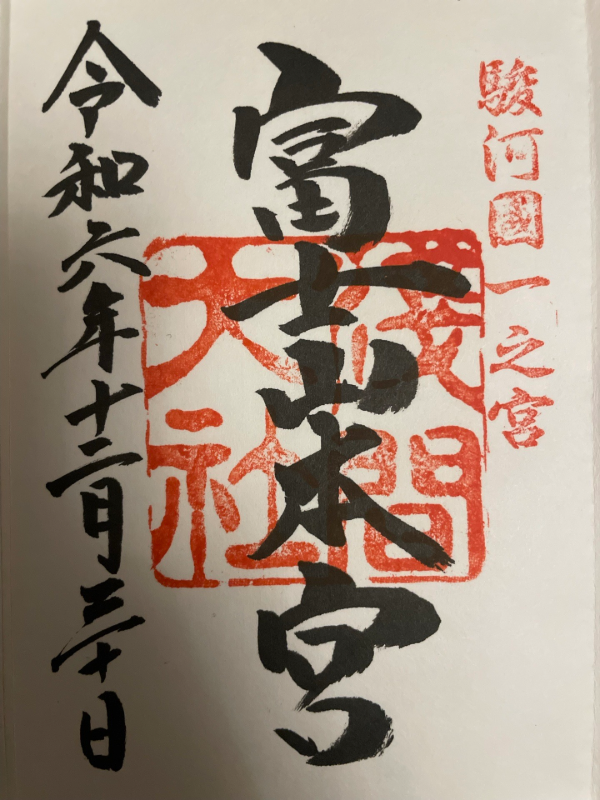 駿河國一之宮
富士山本宮
淺間
大社
令和六年十二月三十日